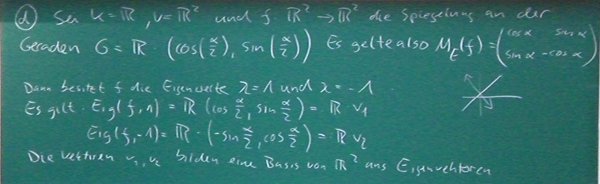 d) Sei K = ℝ, V = ℝ² und f: ℝ² → ℝ² die Spiegelung an der
Geraden G = ℝ · (cos(α/2), sin(α/2)) Es gelte also M_E(f) = (cos α sin α
sin α -cos α)
Dann besitzt f die Eigenwerte λ = 1 und λ = -1
Es gilt. Eig(f, 1) = ℝ (cos α/2, sin α/2) = ℝ v₁
Eig(f, -1) = ℝ · (-sin α/2, cos α/2) = ℝ v₂
Die Vektoren v₁, v₂ bilden eine Basis von ℝ² aus Eigenvektoren